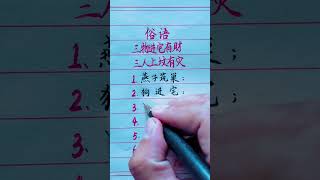 俗语
三物进宅有财
三人上坟有灾
1. 燕子筑巢；
2. 狗进宅；
3.
4.
5.